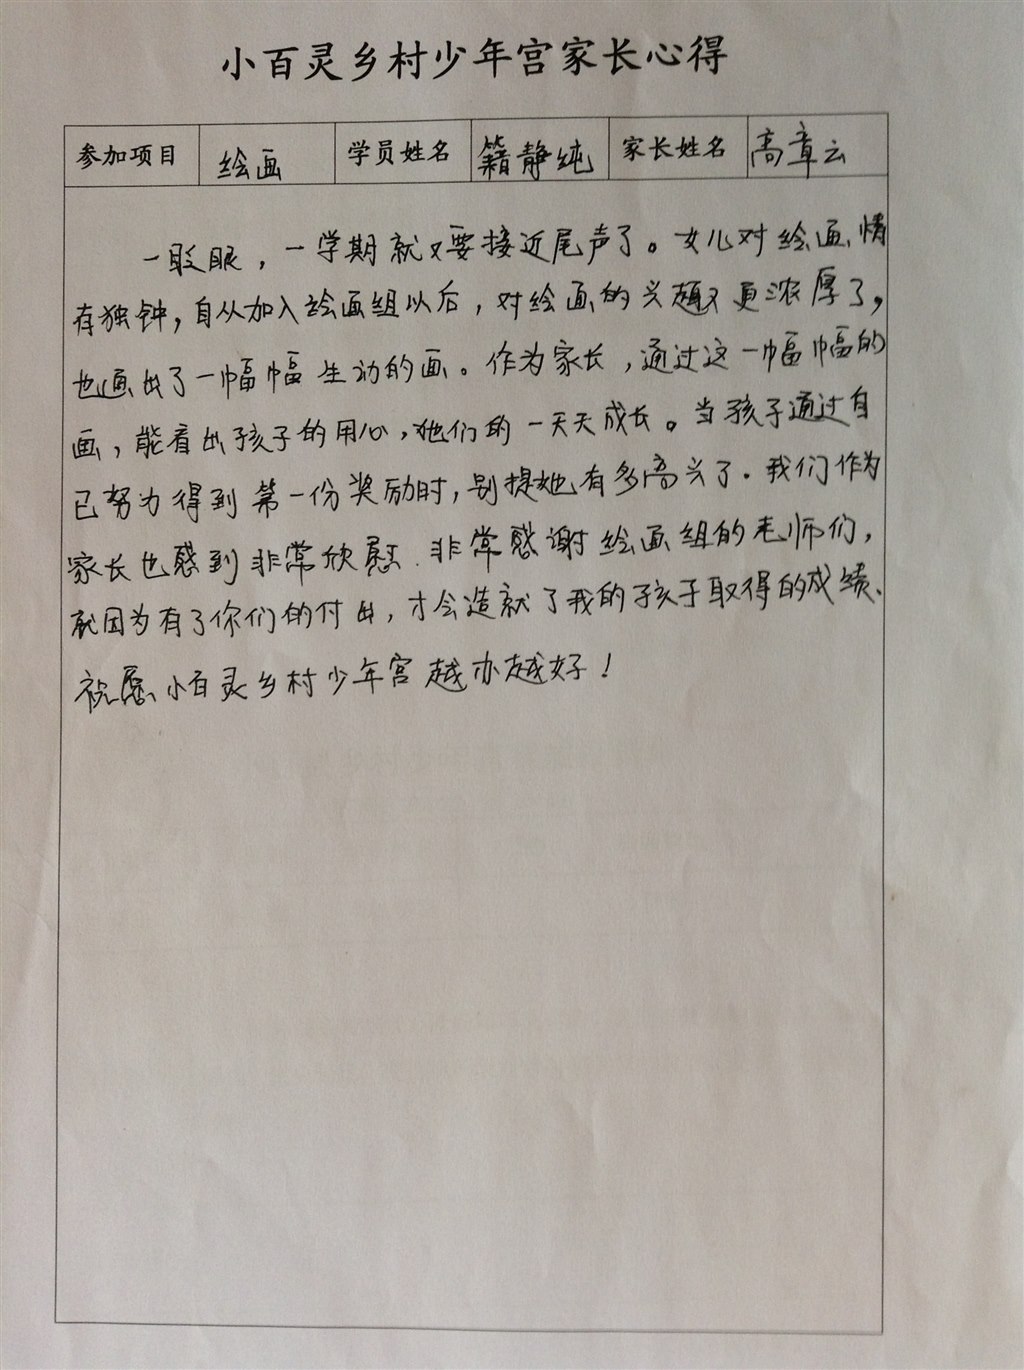 小百灵乡村少年宫家长心得
参加项目 绘画 学员姓名 籍静纯 家长姓名 高章云
一眨眼，一学期就又要接近尾声了。女儿对绘画情
有独钟，自从加入绘画组以后，对绘画的兴趣又更浓厚了，
也画出了一幅幅生动的画。作为家长，通过这一幅幅的
画，能看出孩子的用心，她们的一天天成长。当孩子通过自
己努力得到第一份奖励时，别提她有多高兴了。我们作为
家长也感到非常欣慰．非常感谢绘画组的老师们，
就因为有了你们的付出，才会造就了我的孩子取得的成绩、
祝愿小百灵乡村少年宫越办越好！